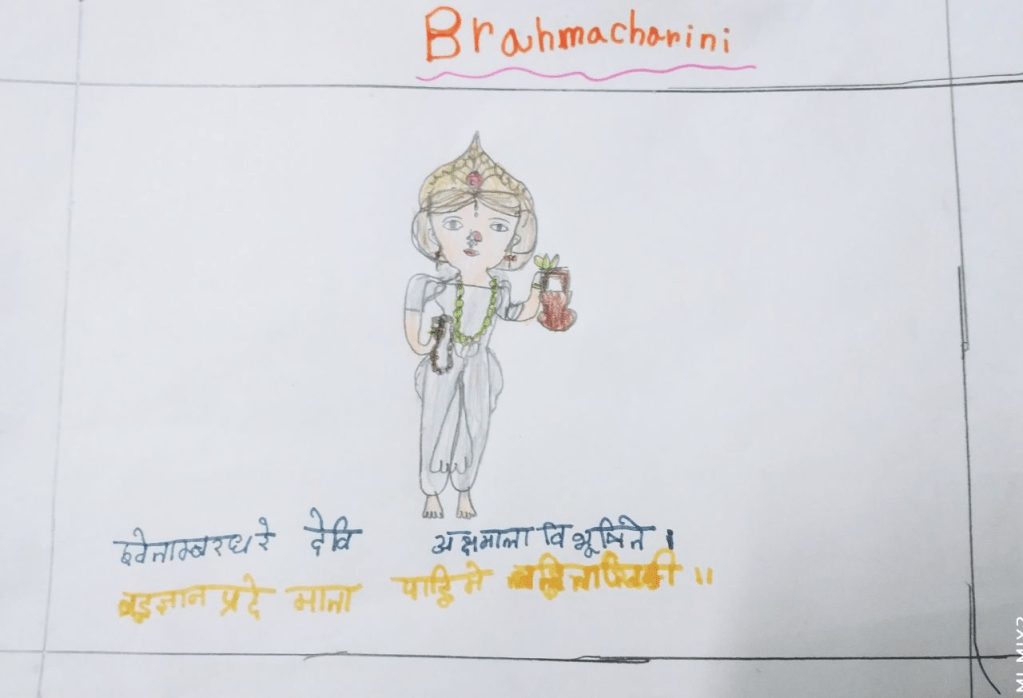 Brahmacharini
श्वेताम्बरधरे देवि अक्षमाला विभूषिते ।
प्रदे माता पाहिमे ॥
MI MIX2